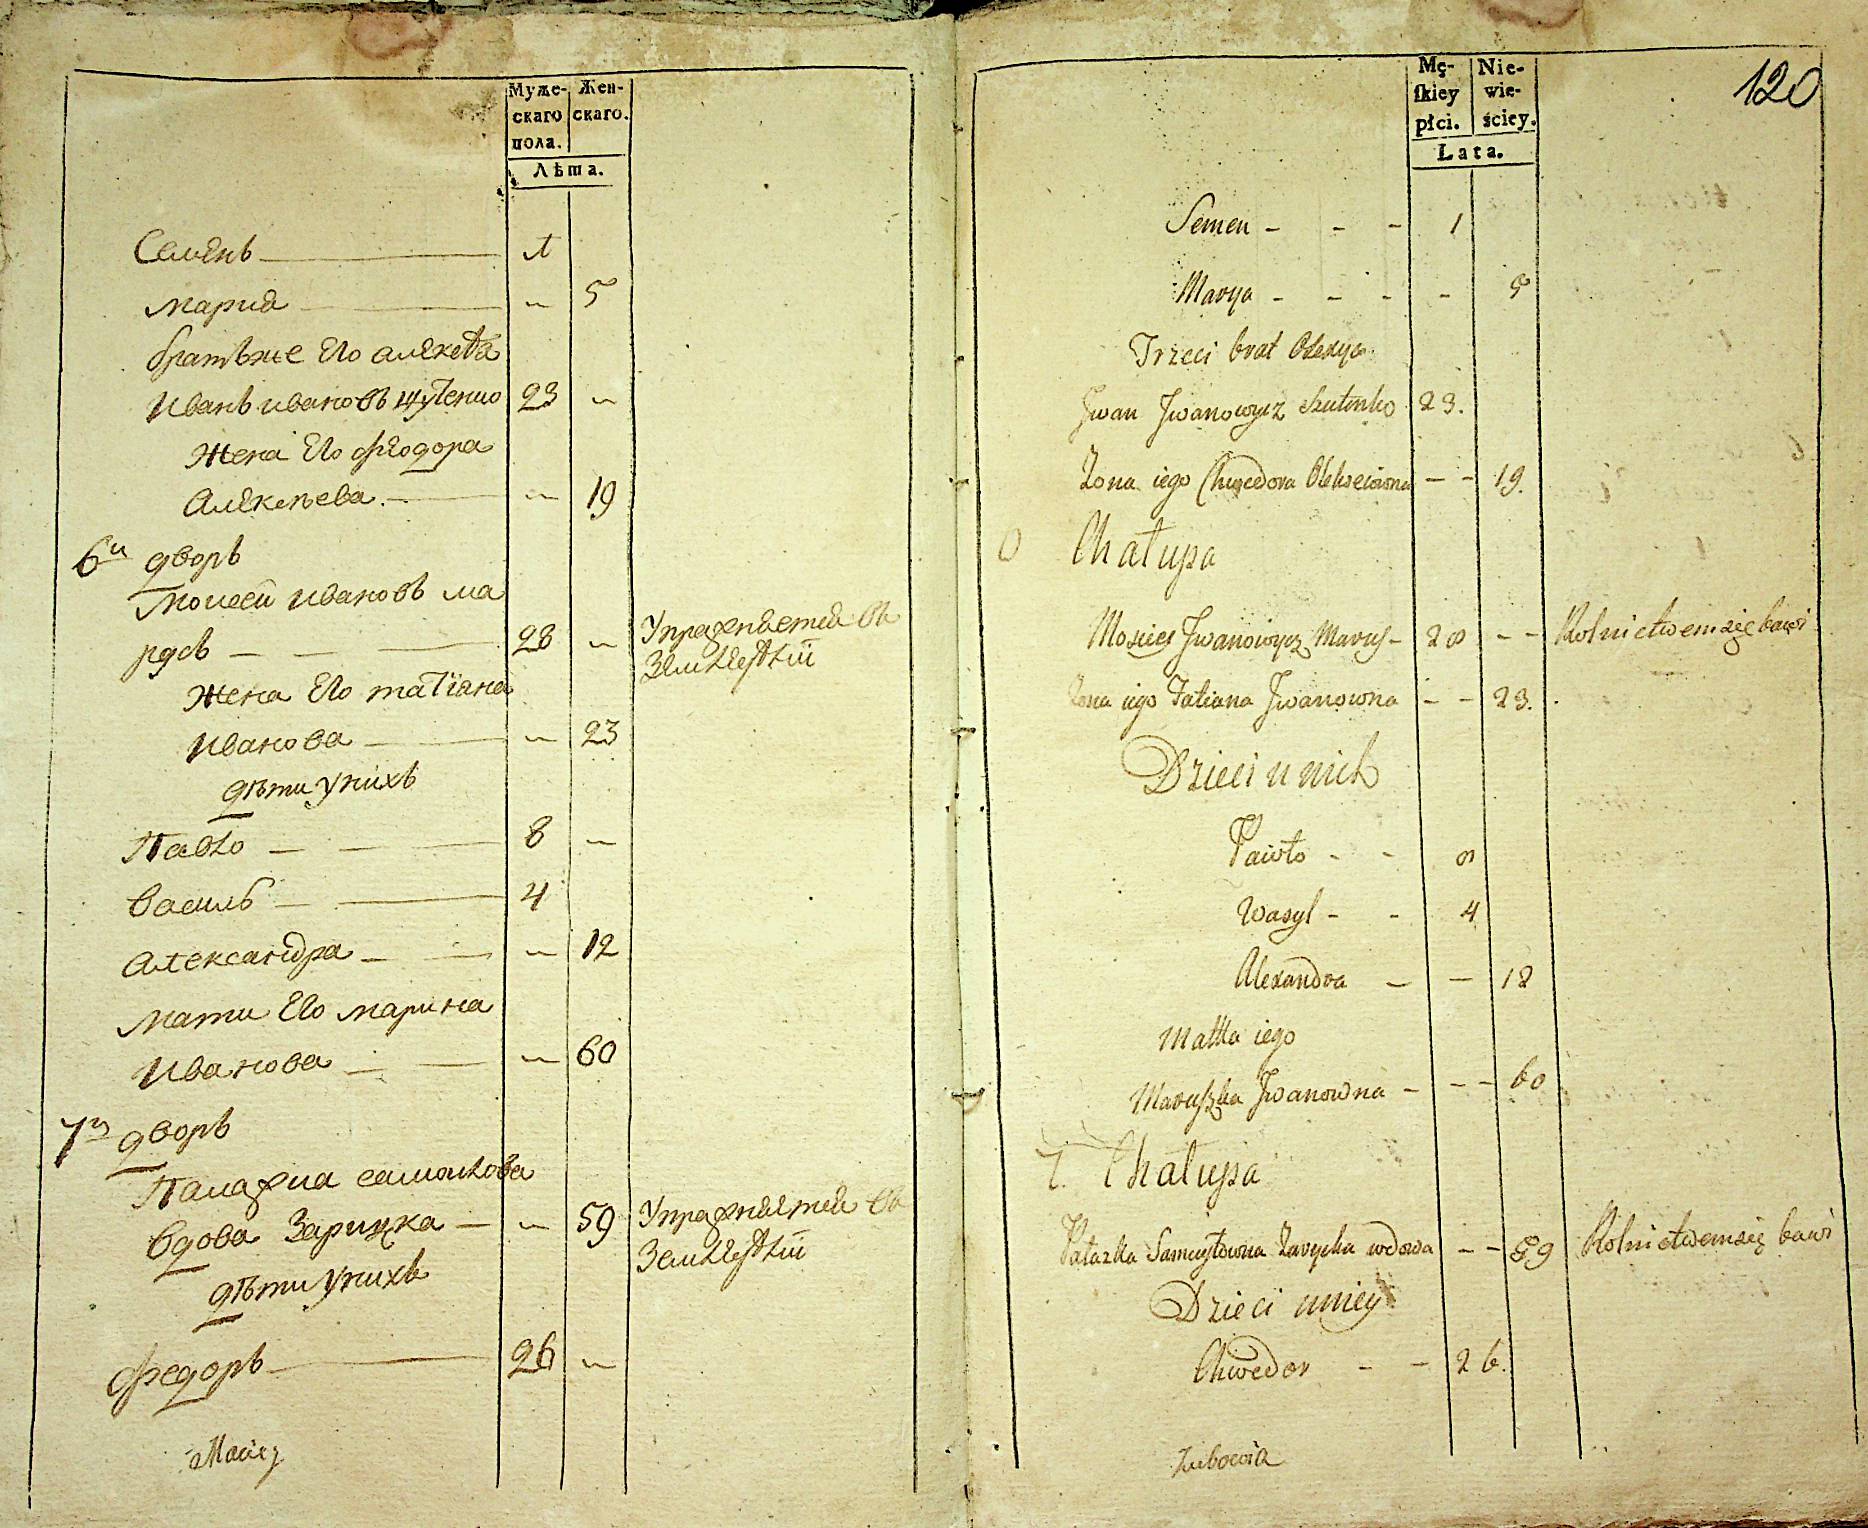 Муже- Жен-
скаго скаго.
пола.
Лѣта.
Семѣнъ 1
Мария — 5
братъже Его алѣксѣя
Иванъ ивановъ шутенко 23 —
Жена Его федора
Алѣксеева — 19
6й дворъ
Моисей ивановъ ма
русь — 28 — Упражняется въ
Земледѣлїи
Жена Его татїана
Иванова — — 23
дѣти унихъ
Павло — 8 —
Василь — 4
Александра — — 12
Мати Его марина
Иванова — — 60
7й дворъ
Палажка самойлова
вдова Зарицка — — 59 Упражняется въ
Земледѣлїи
дѣти унихъ
Федоръ — 26 —
Maciey
120
Mę- Nie-
skiey wie-
płci. ściey.
Lata.
Semen - - - 1
Marya - - - - 5
Trzeci brat Olexya
Iwan Iwanowycz Szutenko 23.
Żona iego Chwedora Olekseiowna - - 19.
Chałupa
Mosiey Iwanowycz Marus - 28 - - Rolnictwem się bawi
Żona iego Tatiana Iwanowna - - 23.
Dzieci u nich
Pawło - - 8
Wasyl - - 4
Alexandra - - 12
Matka iego
Maruszka Iwanowna - - - 60
7. Chałupa
Palazka Samuyłowna Zarycka wdowa - - 59 Rolnictwem się bawi
Dzieci u niey
Chwedor - - 26.